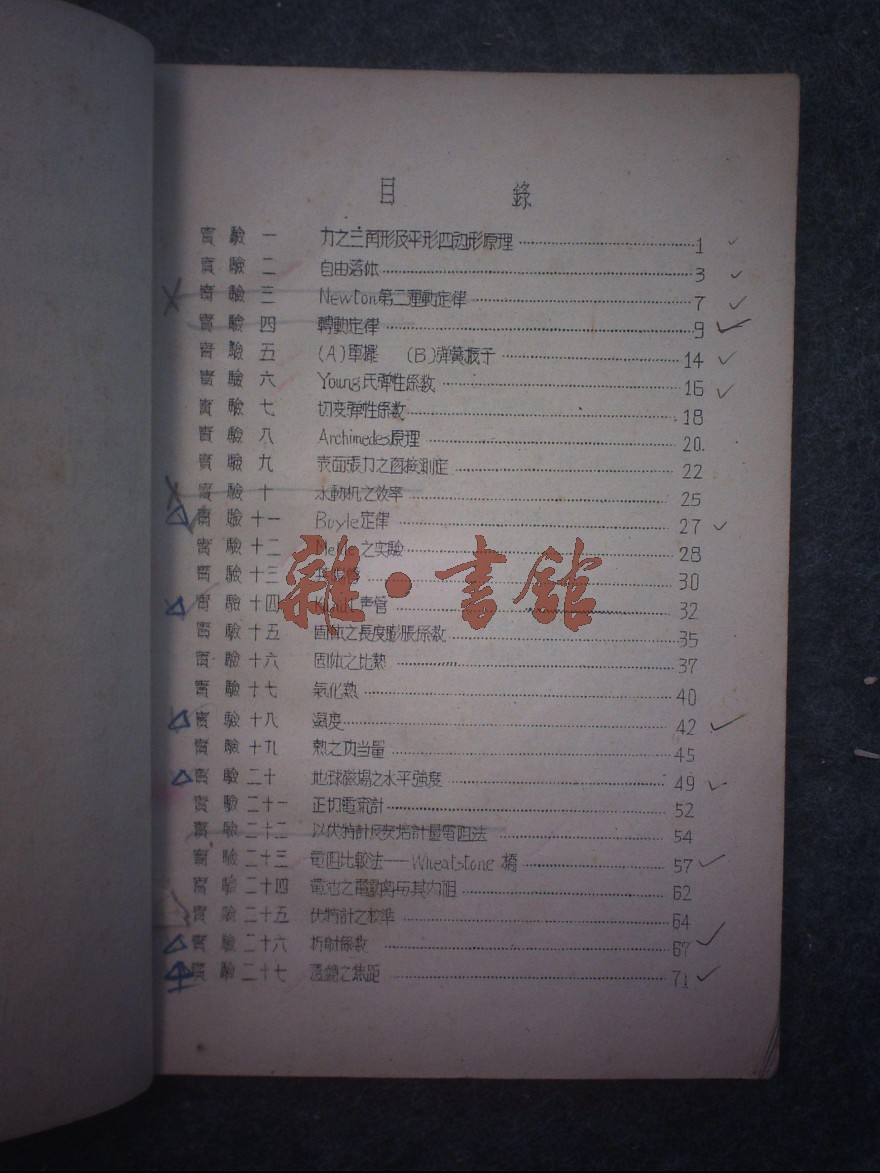 目 錄
實驗一 力之三角形及平形四边形原理 1
實驗二 自由落体 3
實驗三 Newton第二運動定律 7
實驗四 轉動定律 9
實驗五 (A)單擺 (B)弹簧振子 14
實驗六 Young氏弹性係数 16
實驗七 切变弹性係数 18
實驗八 Archimedes原理 20.
實驗九 表面張力之直接測定 22
實驗十 水動机之效率 25
實驗十一 Boyle定律 27
實驗十二 之实驗 28
實驗十三 30
實驗十四 声管 32
實驗十五 固体之長度膨脹係数 35
實驗十六 固体之比熱 37
實驗十七 氣化熱 40
實驗十八 濕度 42
實驗十九 熱之功当量 45
實驗二十 地球磁場之水平強度 49
實驗二十一 正切電流計 52
實驗二十二 以伏特計及安培計量電阻法 54
實驗二十三 電阻比較法——Wheatstone 橋 57
實驗二十四 電池之電動勢与其内阻 62
實驗二十五 伏特計之校準 64
實驗二十六 折射係数 67
實驗二十七 透鏡之焦距 71
雜·書館